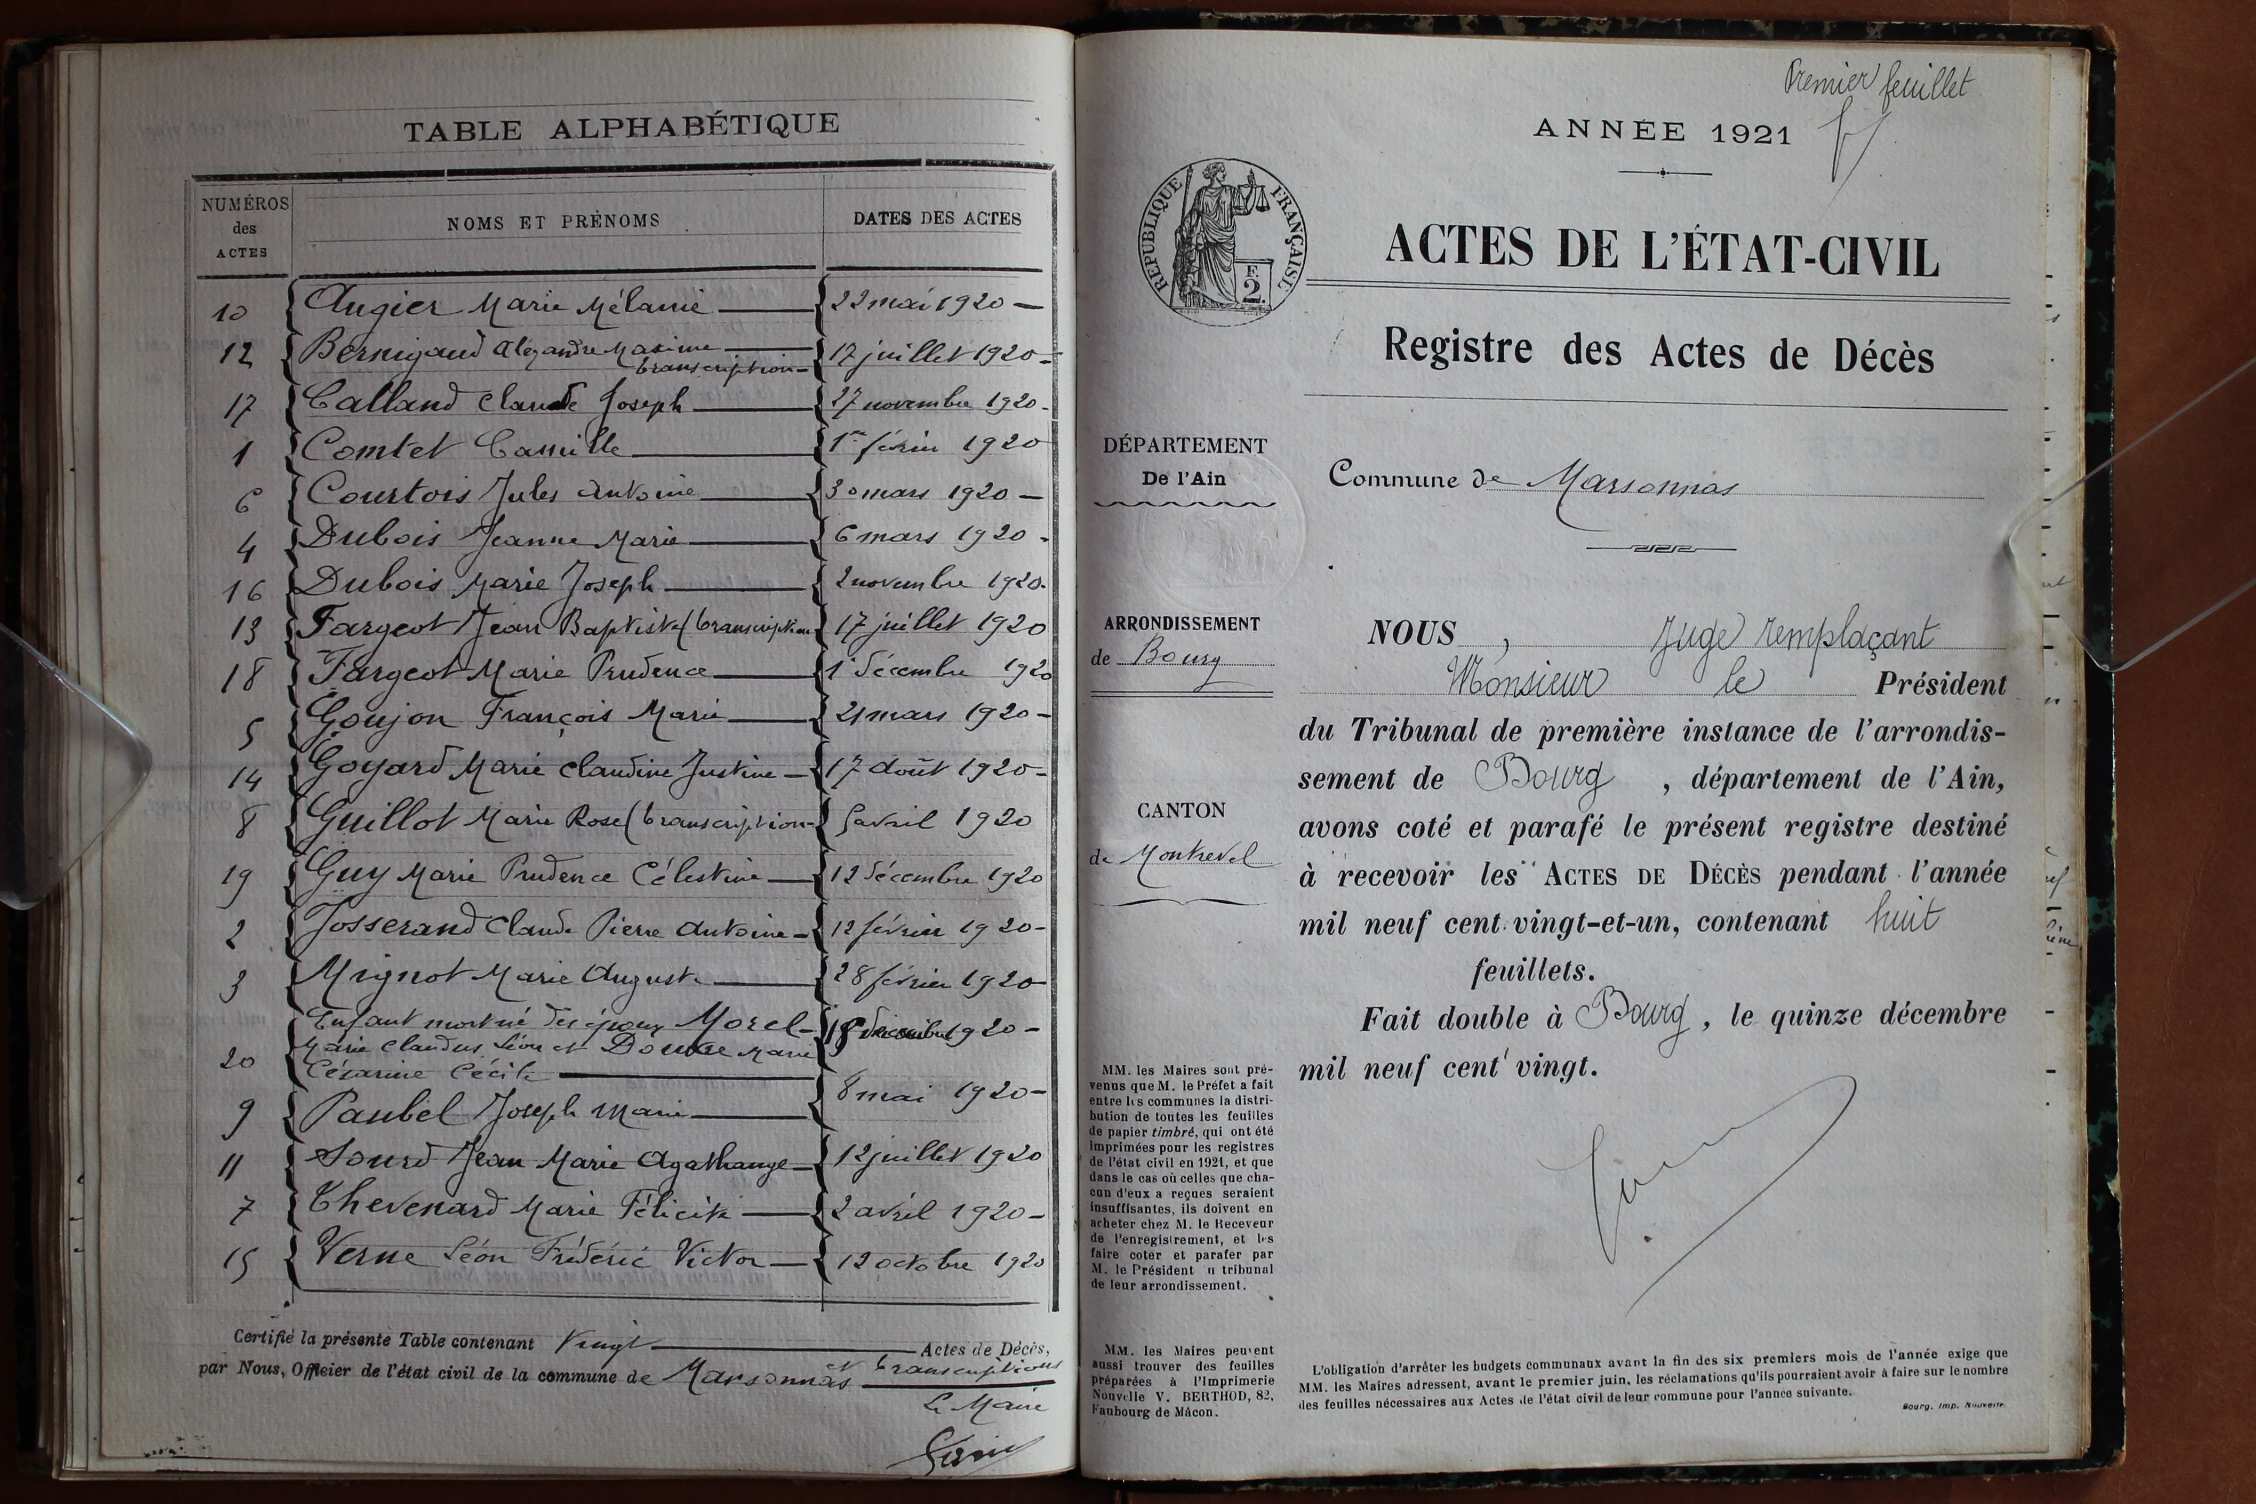 TABLE ALPHABÉTIQUE
NUMÉROS des ACTES
NOMS ET PRÉNOMS
DATES DES ACTES
10 Augier Marie Mélanie 22 mai 1920
12 Bernigaud Alexandre Maxime transcription 17 juillet 1920
17 Calland Claude Joseph 27 novembre 1920
1 Comtet Camille 1er février 1920
6 Courtois Jules Antoine 30 mars 1920
4 Dubois Jeanne Marie 6 mars 1920
16 Dubois Marie Joseph 2 novembre 1920
13 Fargeot Jean Baptiste (transcription 17 juillet 1920
18 Fargeot Marie Prudence 1er décembre 1920
5 Goujon François Marie 21 mars 1920
14 Goyard Marie Claudine Justine 17 août 1920
8 Guillot Marie Rose (transcription 5 avril 1920
19 Guy Marie Prudence Célestine 12 décembre 1920
2 Josserand Claude Pierre Antoine 12 février 1920
3 Mignot Marie Auguste 28 février 1920
Enfant mort né des époux Morel 18 décembre 1920
Marie Claudius Léon et Marie
20 Césarine Cécile
9 Paubel Joseph Marie 8 mai 1920
11 Sourd Jean Marie Agathange 12 juillet 1920
7 Thevenard Marie Félicité 2 avril 1920
15 Verne Léon Frédéric Victor 12 octobre 1920
Certifié la présente Table contenant vingt Actes de Décès,
et transcriptions
par Nous, Officier de l'état civil de la commune de Marsonnas
Le Maire
Premier feuillet
ANNÉE 1921
RÉPUBLIQUE FRANÇAISE
F. 2.
ACTES DE L'ÉTAT-CIVIL
Registre des Actes de Décès
DÉPARTEMENT
De l'Ain
Commune de Marsonnas
ARRONDISSEMENT
de Bourg
CANTON
de Montrevel
NOUS, Juge remplaçant
Monsieur le Président
du Tribunal de première instance de l'arrondis-
sement de Bourg, département de l'Ain,
avons coté et parafé le présent registre destiné
à recevoir les ACTES DE DÉCÈS pendant l'année
mil neuf cent vingt-et-un, contenant huit
feuillets.
Fait double à Bourg, le quinze décembre
mil neuf cent vingt.
MM. les Maires sont pré-
venus que M. le Préfet a fait
entre les communes la distri-
bution de toutes les feuilles
de papier timbré, qui ont été
imprimées pour les registres
de l'état civil en 1921, et que
dans le cas où celles que cha-
cun d'eux a reçues seraient
insuffisantes, ils doivent en
acheter chez M. le Receveur
de l'enregistrement, et les
faire coter et parafer par
M. le Président u tribunal
de leur arrondissement.
MM. les Maires peuvent
aussi trouver des feuilles
préparées à l'Imprimerie
Nouvelle V. BERTHOD, 82,
Faubourg de Mâcon.
L'obligation d'arrêter les budgets communaux avant la fin des six premiers mois de l'année exige que
MM. les Maires adressent, avant le premier juin, les réclamations qu'ils pourraient avoir à faire sur le nombre
des feuilles nécessaires aux Actes de l'état civil de leur commune pour l'année suivante.
Bourg. Imp. Nouvelle